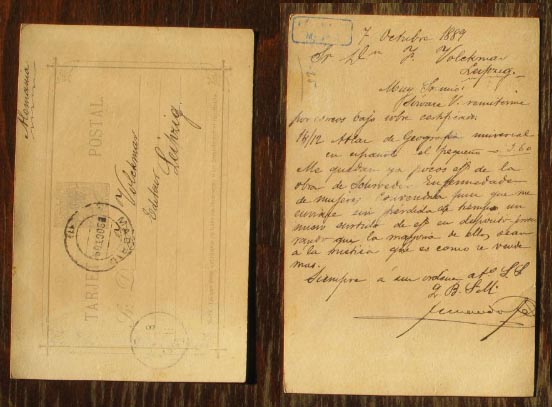 Alemania
TARJETA POSTAL
Sr. D. F. Volckmar
Leipzig
7 Octubre 1889
Sr. Dn F. Volckmar
Leipzig.
Muy Sr. mio:
Sirvase V. remitirme
por correos bajo sobre certificado
Atlas de Geografia universal
en español el pequeño 3.60
Me quedan ya pocos ejs de la
obra de Schroeder. Enfermedades
de mujeres. Convendria pues que me
envie sin pérdida de tiempo un
nuevo surtido de ejs en deposito
que la mayoria de ellos sean
á la rústica que es como se vende
mas.
Siempre á sus ordenes
Q. B. S. M.
Fernando